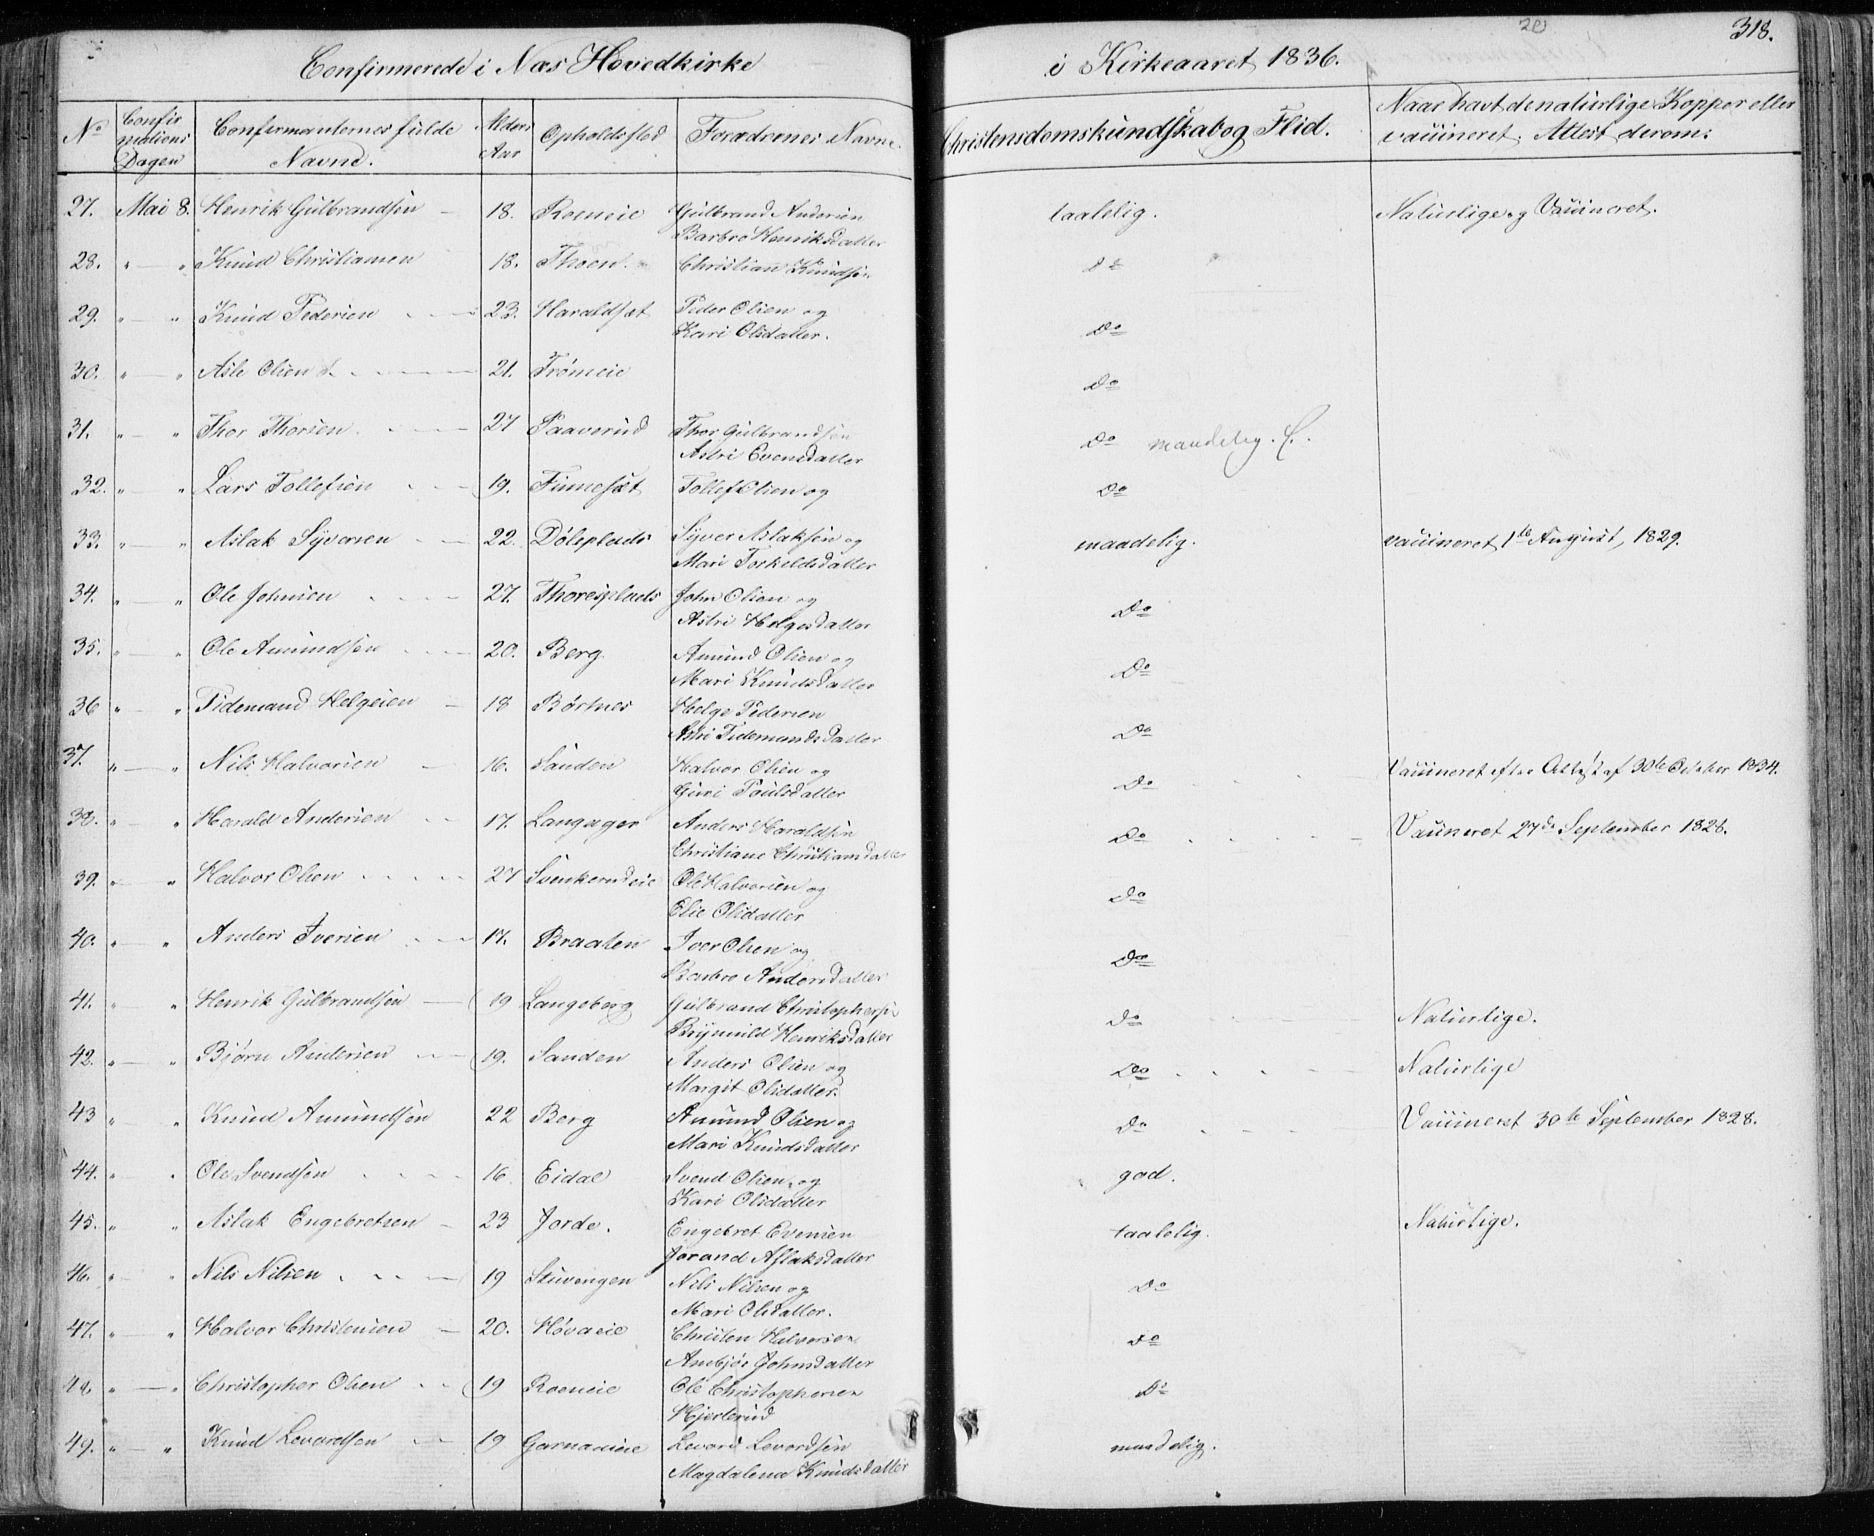 20 318.
Confirmerede i Næs Hovedkirke i Kirkeaaret 1836.
No Confirmations Dagen Confirmanternes fulde Navne. Alders Aar Opholdssted Forædrenes Navne. Christensdomskundskab og Flid. Naar havt de naturlige Kopper eller vaccineret. Attest derom:
27. Mai 8. Henrik Gulbrandsøn 18. Roeneie Gulbrand Andersen taalelig. Naturlige og Vaccineret.
Barbro Henriksdatter
28. " — " Knud Christiansen 18. Thoen. Christian Knudsøn do
29. " — " Knud Pedersen 23. Haraldset Peder Olsen og
Kari Olsdatter. Do
30. " — " Asle Olsen 21. Trømeie Do
31. " — " Thor Thorsen 27 Paaverud Thor Gulbrandsøn Do maadelig.
Astri Evensdatter
32. " — " Lars Tollefsen 19. Finneset Tollef Olsen og Do
33. " — " Aslak Syversen 22. Døleplads Syver Aslaksøn og maadelig. vaccineret 1te August, 1829.
Mari Torkeldsdatter
34. " — " Ole Johnsen 27. Thoresplads John Olsen og Do
Astri Helgesdatter
35. " — " Ole Amundsøn 20. Berg Amund Olsen og
Mari Knudsdatter Do
36 " — " Tidemand Helgesen 18 Børtnes Helge Pedersen
Astri Tidemandsdatter Do
37. " — " Nils Halvorsen 16. Sanden Halvor Olsen og Do Vaccineret efter Attest af 30te October 1834.
Guri Paulsdatter
38. " — " Harald Andersen 17. Langager Anders Haraldsøn Do Vaccineret 27de September 1828.
Christiane Christiansdatter
39. " — " Halvor Olsen 27 Svenkerudeie Ole Halvorsen og Do
Elie Olsdatter
40. " — " Anders Iversen 17. Braaten Iver Olsen og Do
Barbro Andersdatter
41. " — " Henrik Gulbrandsøn 19 Langeberg Gulbrand Christophersøn Do Naturlige.
Henriksdatter
42. " — " Bjørn Andersen 19. Sanden Anders Olsen og Do Naturlige
Margit Olsdatter.
43 " — " Knud Amundsøn 22 Berg Amund Olsen og Do Vaccineret 30te September 1828.
Mari Knudsdatter
44. " — " Ole Svendsøn 16. Eidal Svend Olsen og god.
Kari Olsdatter
45. " " Aslak Engebretsen 23 Jorde. Engebret Evensen taalelig. Naturlige.
Jorand Aslaksdatter
46. " — " Nils Nilsen 19 Stuvengen Nils Nilsen og Do
Mari Olsdatter.
47. " — " Halvor Christensen 20. Høvaeie Christen Halvorsen Do
Ambjør Johnsdatter
48. " — " Christopher Olsen 19 Roeneie Ole Christophersen Do
Hjerterud
49. " — " Knud Levordsøn 19 Garnaaseie Levord Levordsøn maadelig.
Magdalena Knudsdatter